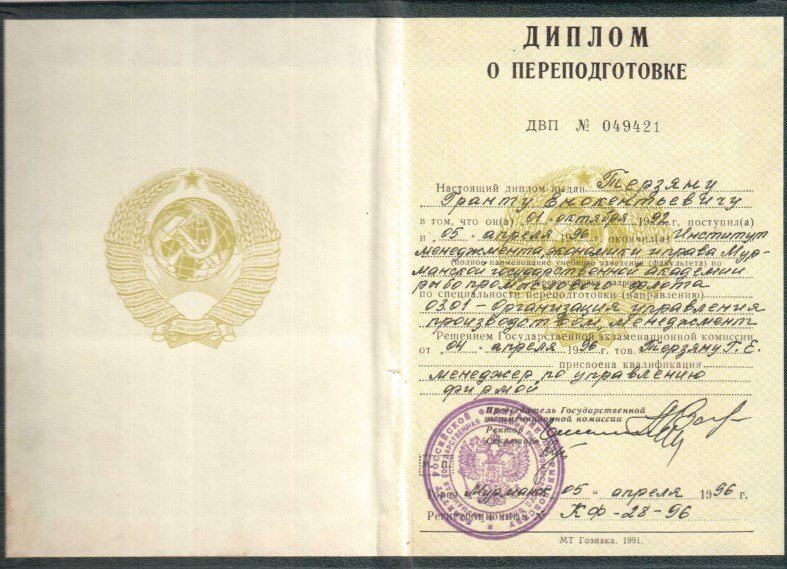 ДИПЛОМ
О ПЕРЕПОДГОТОВКЕ
ДВП № 049421
Настоящий диплом выдан Терзяну
Гранту Енокентьевичу
в том, что он(а) 01 октября 1992 г. поступил(а)
и „05" апреля 1996 г. окончил(а) Институт
менеджмента экономики и права Мур-
(полное наименование учебного заведения (факультета) по
манской государственной академии
рыбопромыслового флота
по специальности переподготовки (направлению)
0301 - Организация управления
производством, менеджмент
Решением Государственной экзаменационной комиссии
от „04" апреля 1996 г. тов. Терзяну Г. Е.
присвоена квалификация
менеджер по управлению
фирмой
Председатель Государственной
экзаменационной комиссии
Ректор
Секретарь
Город Мурманск „05" апреля 1996 г.
Регистрационный № КФ-28-96
МТ Гознака. 1991.